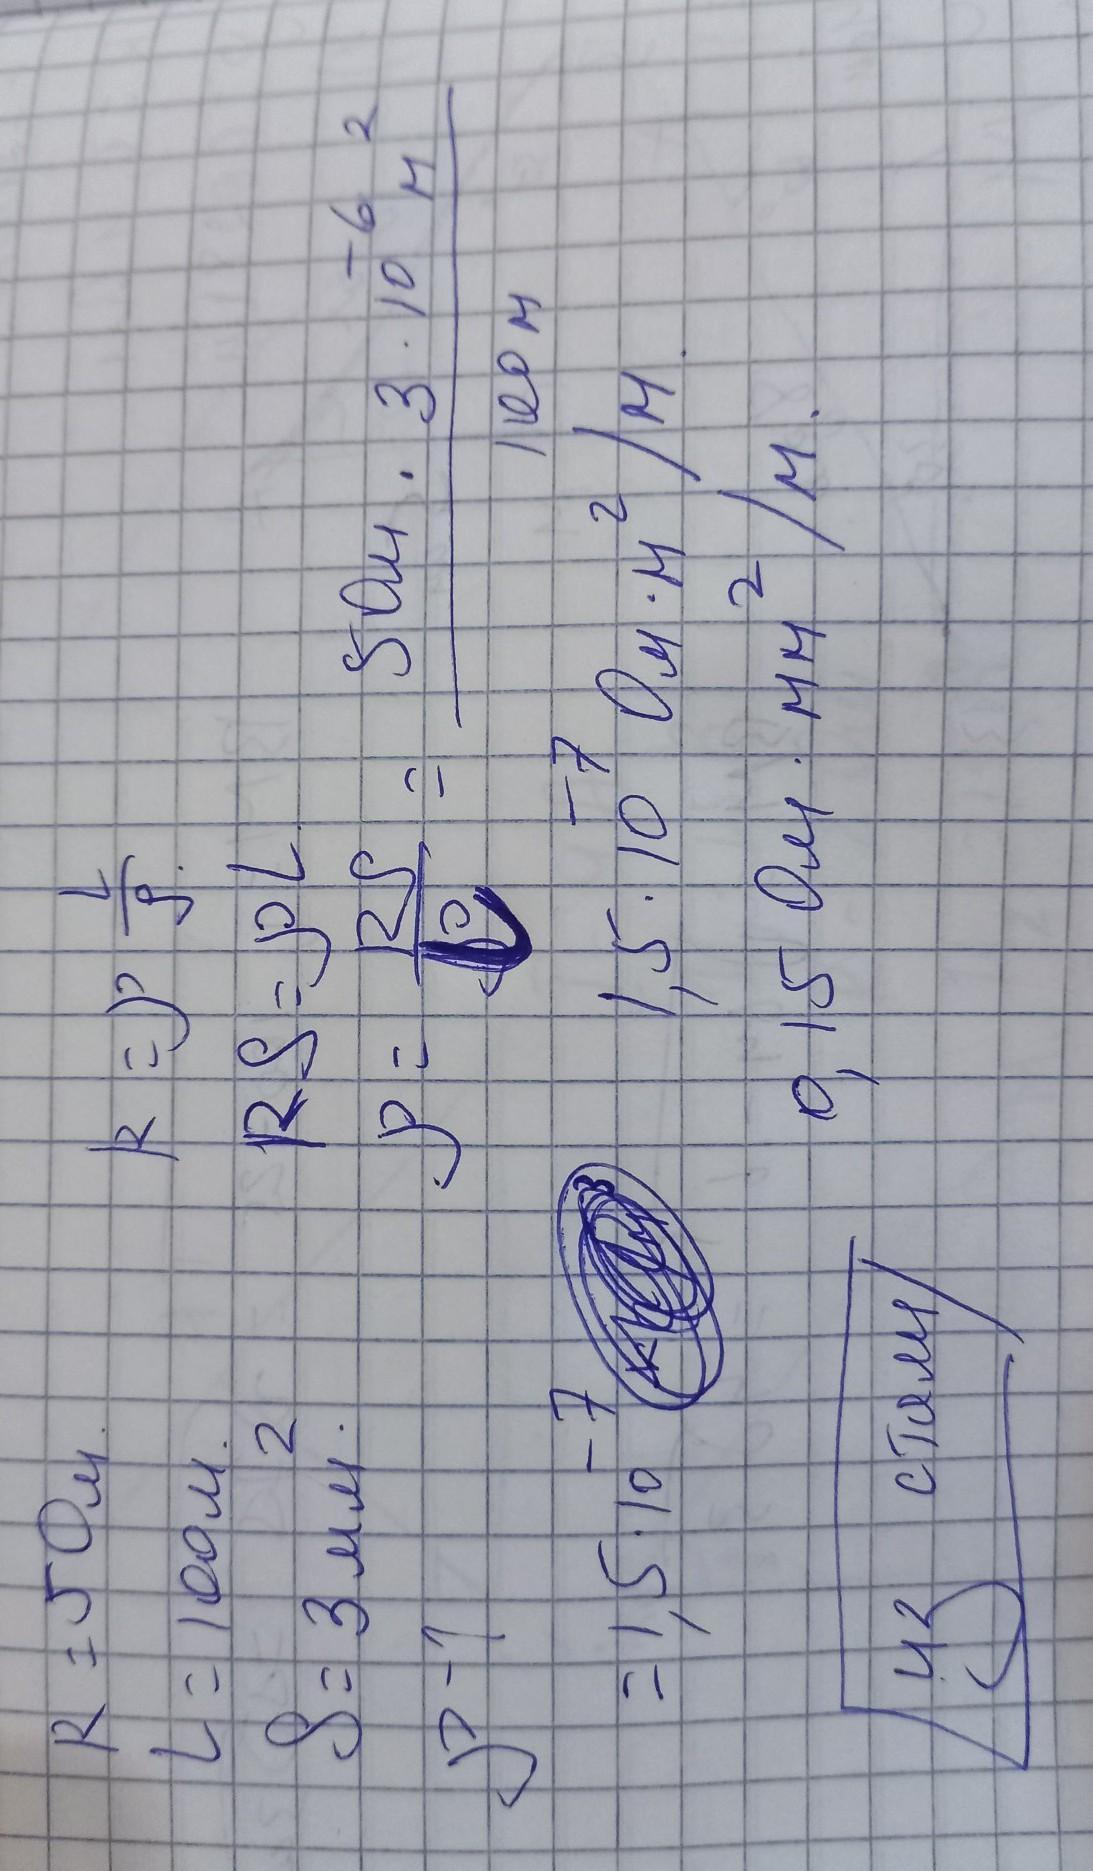 R = 5 Ом.
L = 100 м.
S = 3 мм².
ρ - ?
R = ρ L/S.
RS = ρL
ρ = RS/L = 5 Ом · 3 · 10⁻⁶ м² / 100 м
= 1,5 · 10⁻⁷
1,5 · 10⁻⁷ Ом · м²/м.
0,15 Ом · мм²/м.
из стали